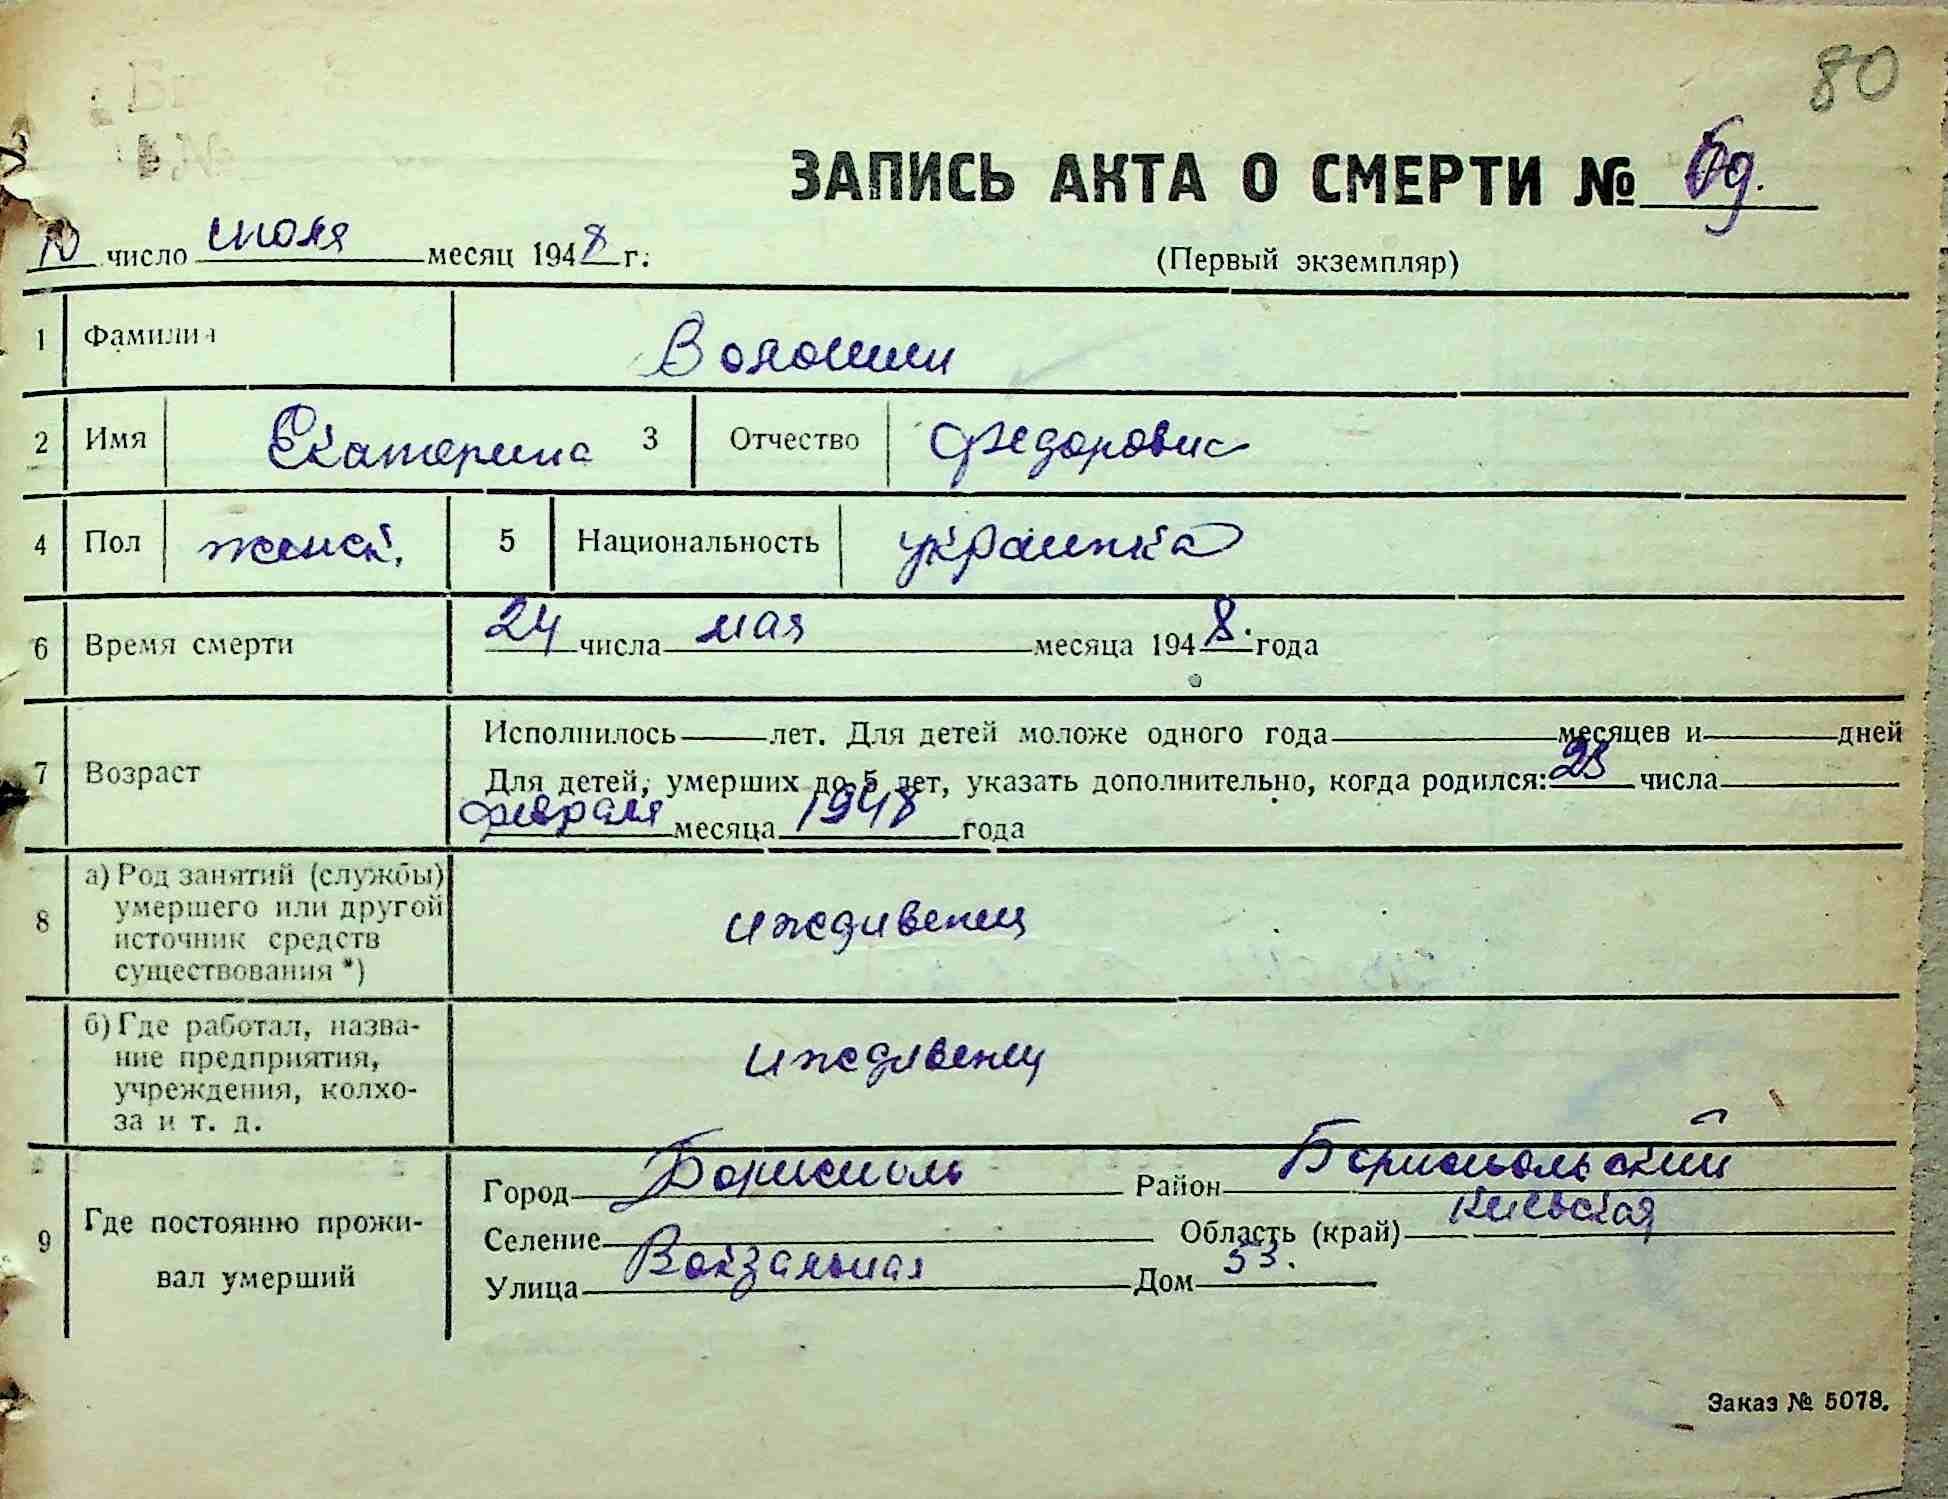 80
ЗАПИСЬ АКТА О СМЕРТИ №
10 число июля месяц 1948 г.
(Первый экземпляр)
1 Фамилия Волошин
2 Имя Екатерина 3 Отчество Федоровна
4 Пол женск. 5 Национальность украинка
6 Время смерти 24 числа мая месяца 1948. года
Исполнилось лет. Для детей моложе одного года месяцев и дней
7 Возраст Для детей, умерших до 5 лет, указать дополнительно, когда родился: 23 числа
февраля месяца 1948 года
8 а) Род занятий (службы)
умершего или другой
источник средств
существования *)
иждивенец
б) Где работал, назва-
ние предприятия,
учреждения, колхо-
за и т. д.
иждивенец
9 Где постоянно прожи-
вал умерший
Город Борисполь Район Бориспольский
Селение Область (край) Киевская
Улица Вокзальная Дом 53.
Заказ № 5078.